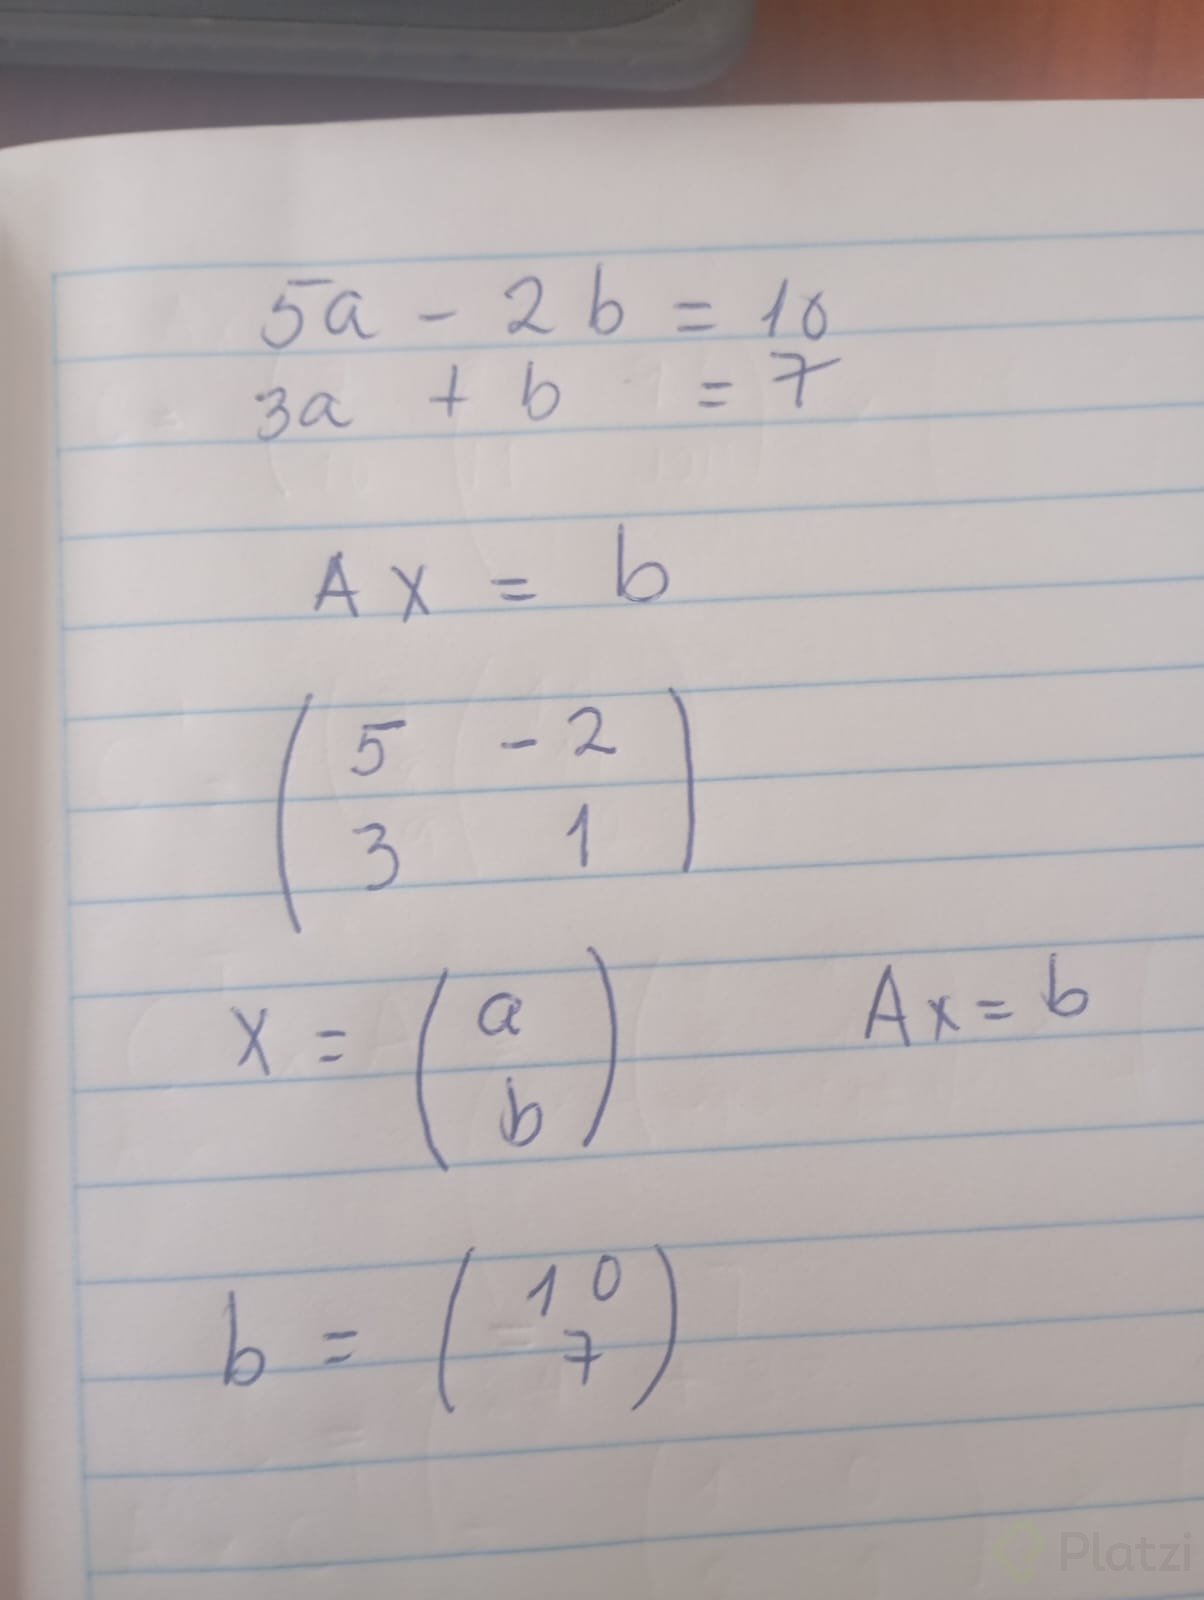 5a - 2b = 10
3a + b = 7
Ax = b
( 5 -2
3 1 )
X = ( a
b )
Ax = b
b = ( 10
7 )
Platzi